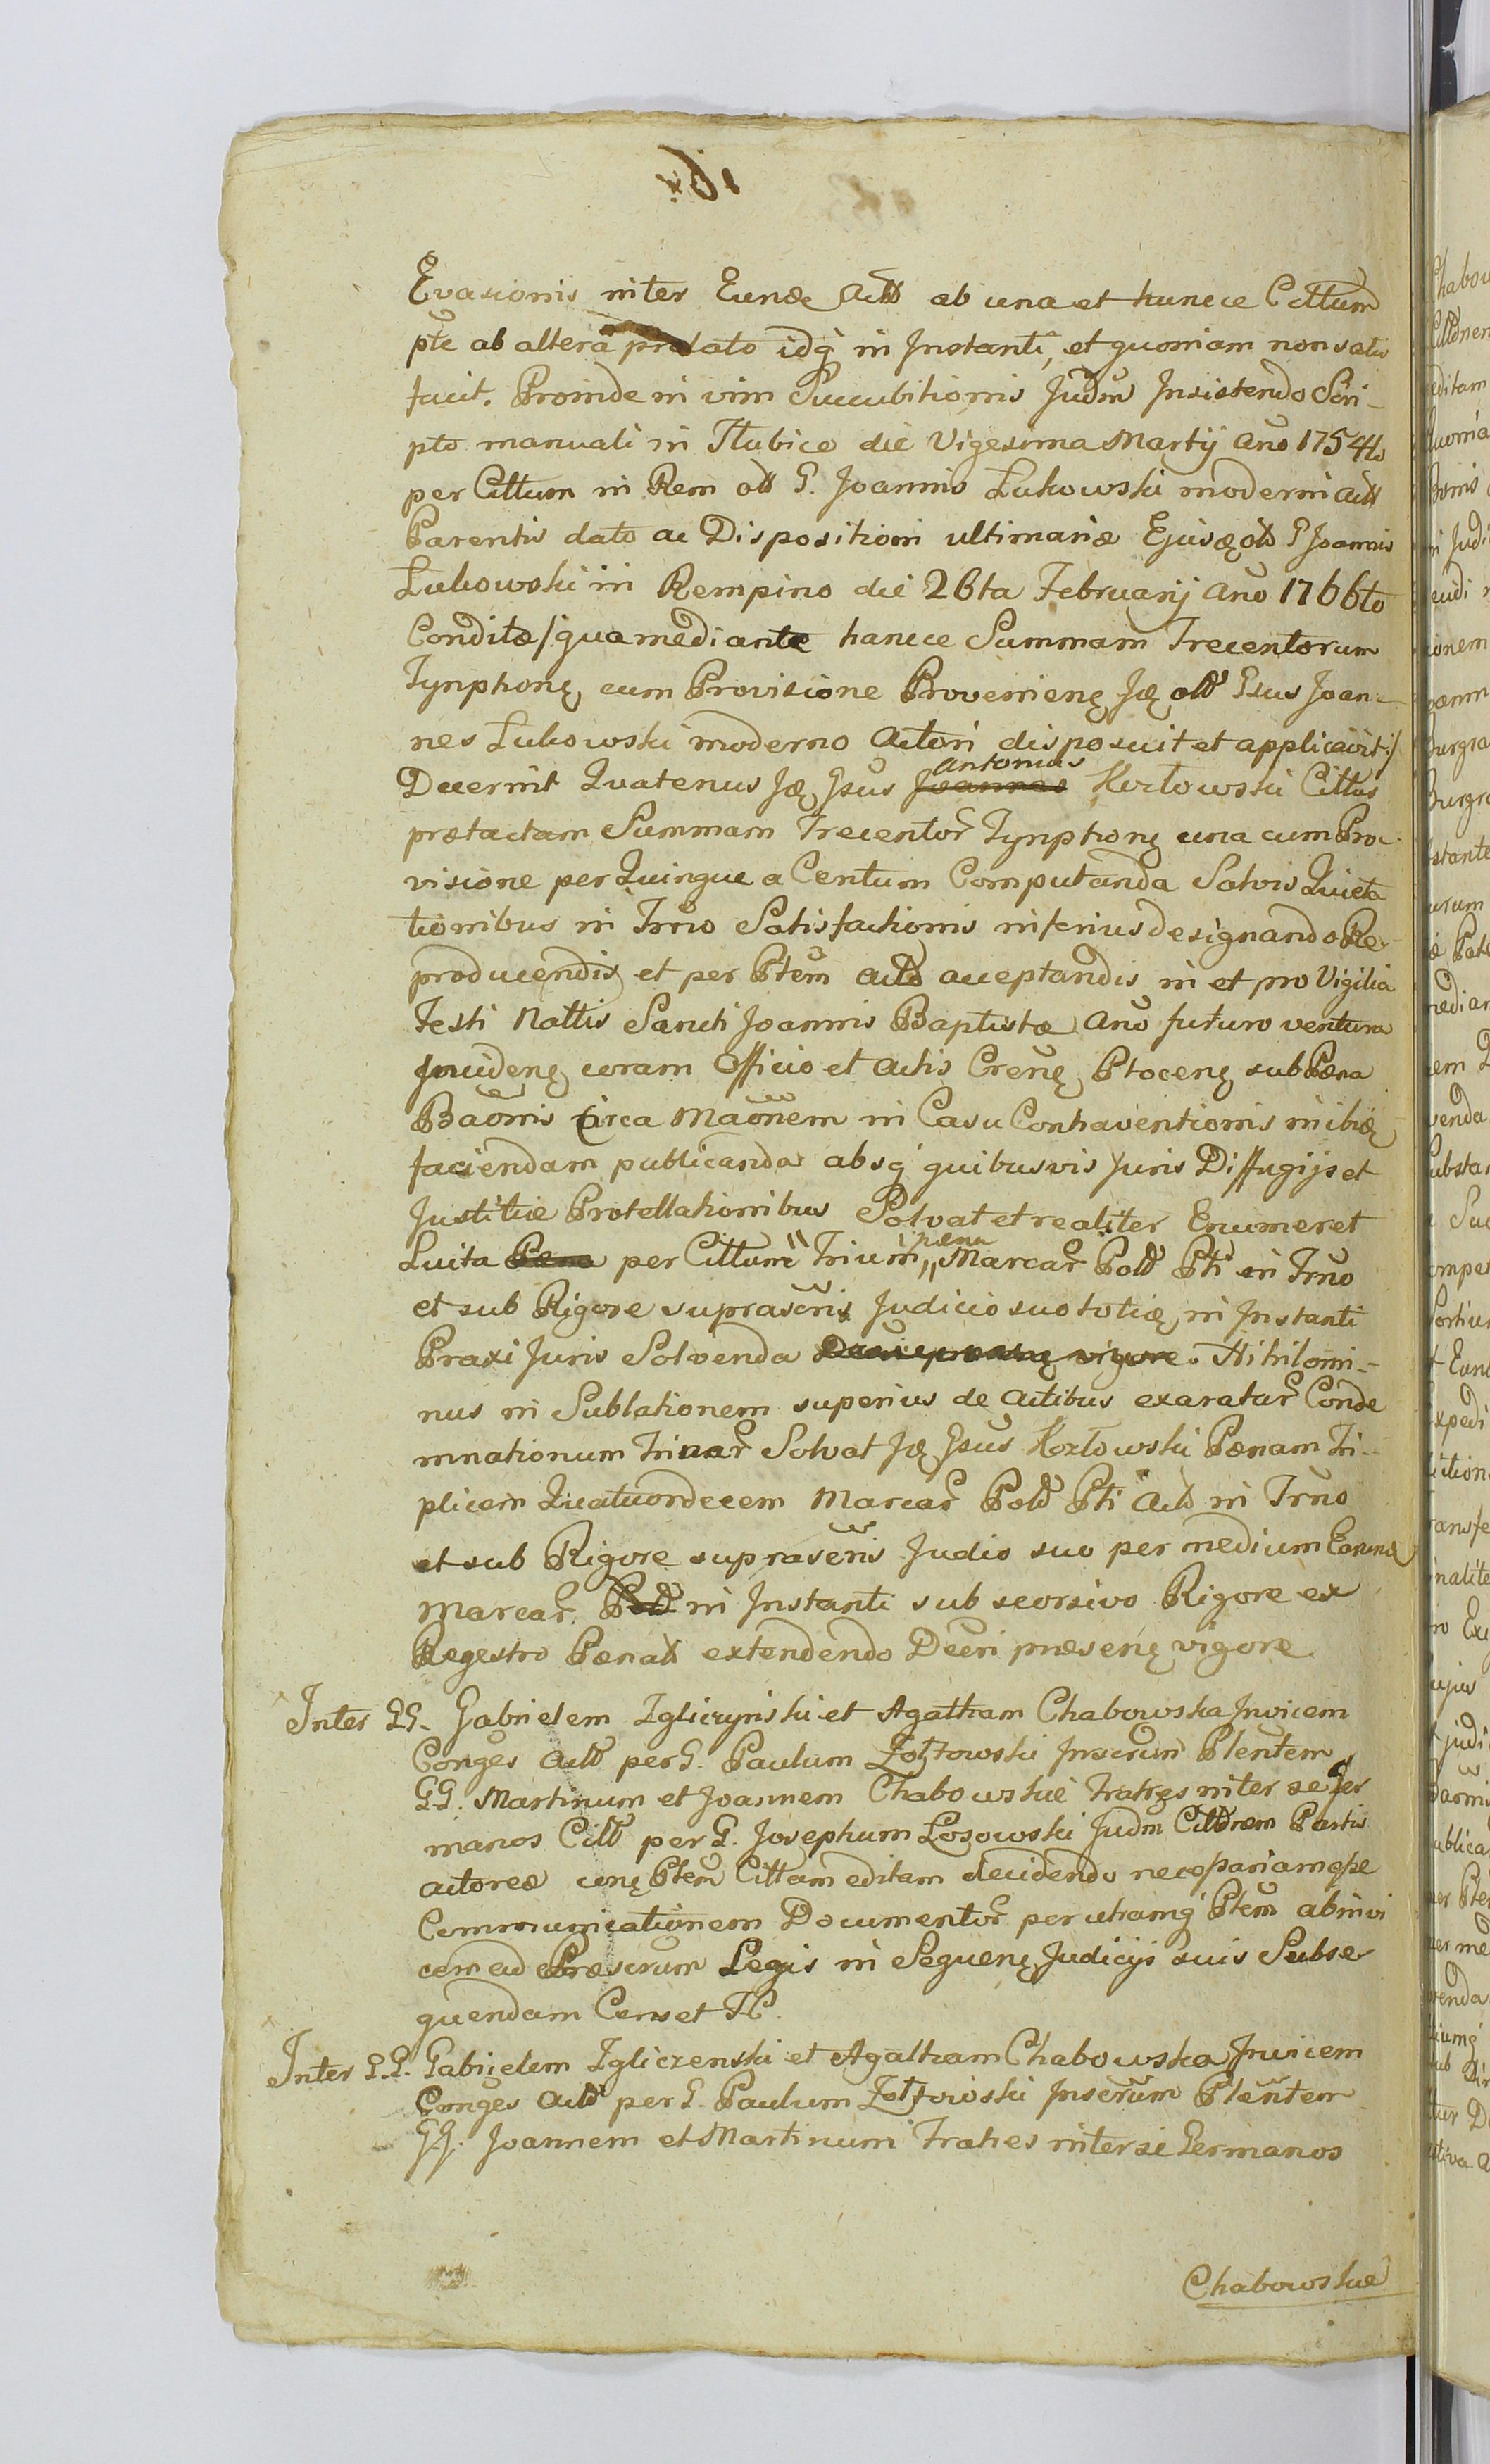 Evasionis inter Eund Actt ab una et hunce Cittum
pte ab altera prolato idq in Instanti, et quoniam non satis
fecit. Proinde in vim Succubitionis Judm Insistendo Scri-
pto manuali in Słubice die Vigesima Martij Ano 1754to
per Cittum in Rem olt G. Joannis Łukowski moderni Actt
Parentis dato ac Dispositioni ultimariæ Ejusq olt G Joannis
Łukowski in Rempino die 26ta Februarij Ano 1766to
Conditæ/ qua mediante hancce Summam Trecentorum
Tynphonę cum Provisione Provenienę Ję olt Gsus Joan-
nes Łukowski moderno Actori disposuit et applicavit:/
Decernit Quatenus Ję Gsus Joannes Antonius Kozłowski Cittus
prætactam Summam Trecentor Tynphonę una cum Pro-
visione per Quinque a Centum Computanda Salvis Quieta
tionibus in Trno Satisfactionis inferius designando Re-
producendis et per Ptem Actt acceptandis in et pro Vigilia
Festi Nattis Sancti Joannis Baptistæ Ano futuro ventura
Incidenę coram Officio et Actis Crenę Płocenę sub Pæna
Baonis Circa Maonem in Casu Contraventionis inibię
faciendam publicanda absq quibusvis Juris Diffugijs et
Justitiæ Protellationibus Solvat et realiter Enumeret
Luita Pena per Cittum Trium pæna Marcar Poltt Pti in Trno
et sub Rigore suprascris Judicio suo totię in Instanti
Praxi Juris Solvenda vigore. Nihilomi-
nus in Sublationem superius de Actibus exaratar Conde
mnationum trinar Solvat Ję Gsus Kozłowski Pænam Tri-
plicem Quatuordecem Marcar Poltt Pti Actt in Trno
et sub Rigore suprascris Judio suo per medium Earund
Marcar Poltt in Instanti sub seorsivo Rigore ex
Regestro Pænalt extendendo Decri præsenę vigore
Inter GG. Gabrielem Zgliczynski et Agatham Chabowska Invicem
Conges Actt per G. Paulum Zołtowski Inscrum Plentem
GG. Martinum et Joannem Chabowskie Fratres inter se Ger
manos Citt per G. Josephum Łosowski Judm Cittonem Partis
Actoreæ Ptem Cittam editam decidendo
Communicationem Documentor per utramq Ptem abinvi
cem ad Præscrum Legis in Sequenę Judicijs suis Subse
quendam Censet
Inter G.G. Gabrielem Zgliczenski et Agatham Chabowska Invicem
Conges Actt per G. Paulum Zołtowski Inscrum Plentem
GG. Joannem et Martinum Fratres inter se Germanos
Chabowskie